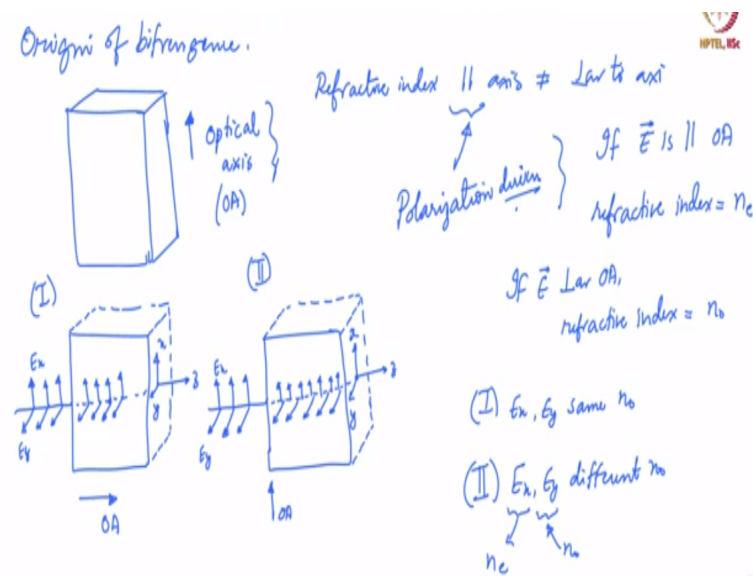 Origin of bifringence.
NPTEL, IISc
Refractive index || axis ≠ Lar to axi
Optical
axis
(OA)
Polarization driven
If E⃗ is || OA
refractive index = ne
If E⃗ Lar OA,
refractive index = no
(I)
(II)
Ex
Ey
x
y
z
OA
Ex
Ey
x
y
z
OA
(I) Ex, Ey same no
(II) Ex, Ey different no
ne
no